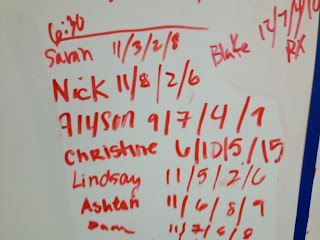 6:30
Sarah 11/3/2/8
Blake
RX
Nick 11/8/2/6
Alyson 9/7/4/9
Christine 6/10/5/15
Lindsay 11/5/2/6
Ashton 11/6/8/9
11/7/6/8